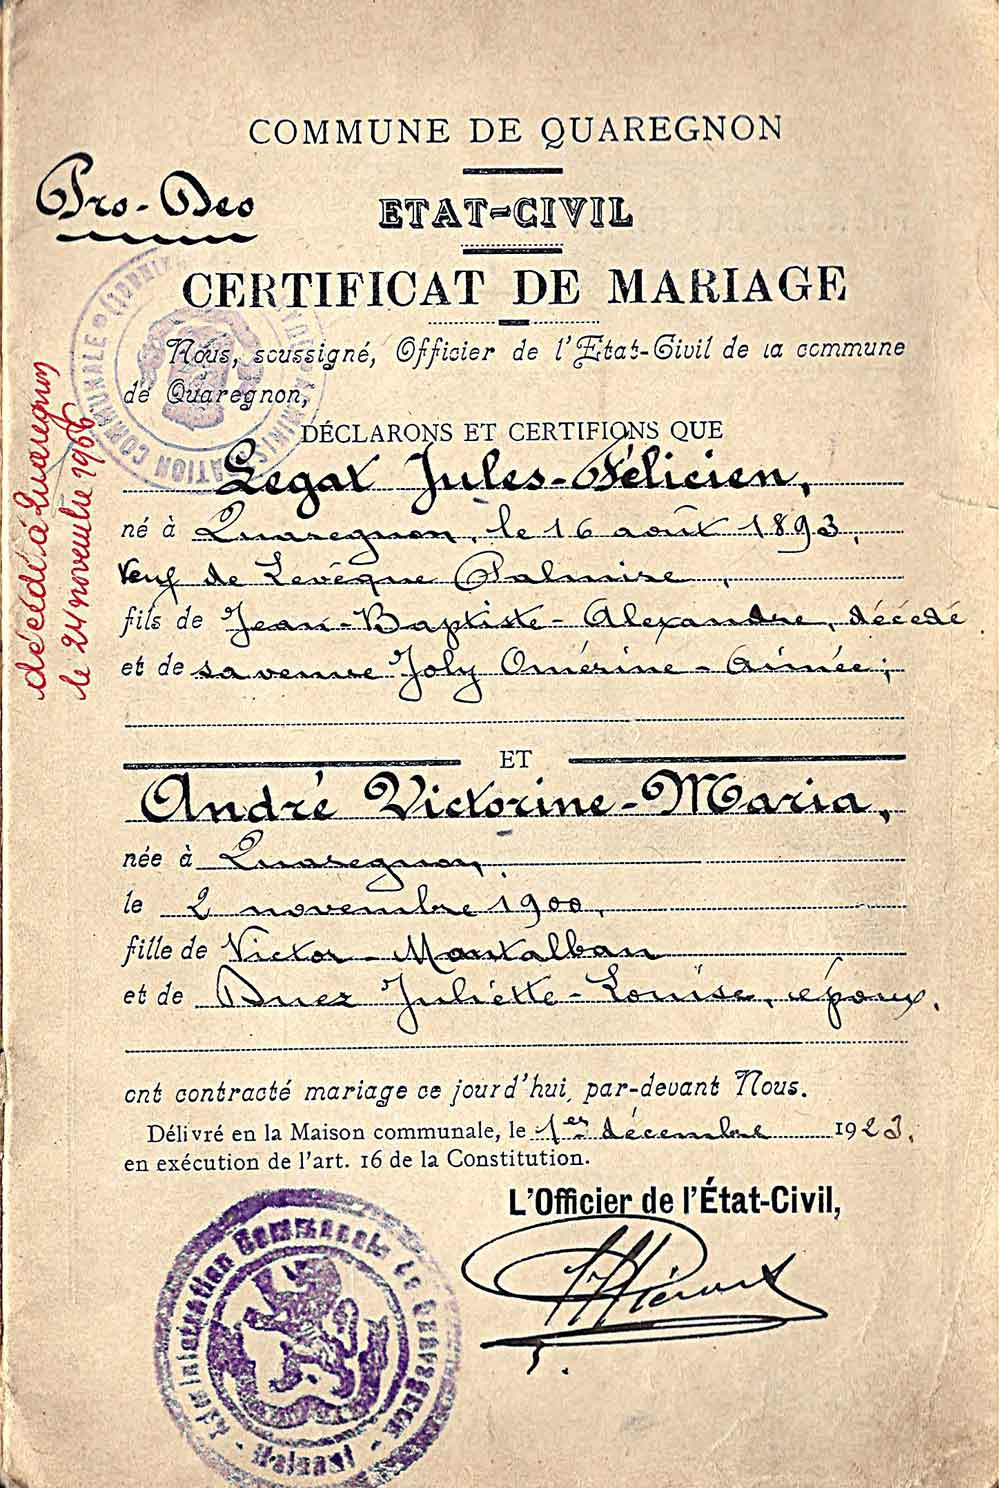 COMMUNE DE QUAREGNON
Pro-Deo
ETAT-CIVIL
CERTIFICAT DE MARIAGE
Nous, soussigné, Officier de l'Etat-Civil de la commune
de Quaregnon,
DÉCLARONS ET CERTIFIONS QUE
Legat Jules-Félicien,
né à Quaregnon, le 16 août 1893,
veuf de Levêque Palmire,
fils de Jean-Baptiste-Alexandre, décédé
et de sa veuve Joly Omérine-Aimée;
ET
André Victorine-Maria,
née à Quaregnon,
le 2 novembre 1900,
fille de Victor-Montalban
et de Duez Juliette-Louise, époux.
ont contracté mariage ce jourd'hui, par-devant Nous.
Délivré en la Maison communale, le 1er décembre 1923.
en exécution de l'art. 16 de la Constitution.
L'Officier de l'État-Civil,
décédé à Quaregnon
le 24 novembre 1966
ADMINISTRATION COMMUNALE
Administration Communale de Quaregnon - Hainaut -